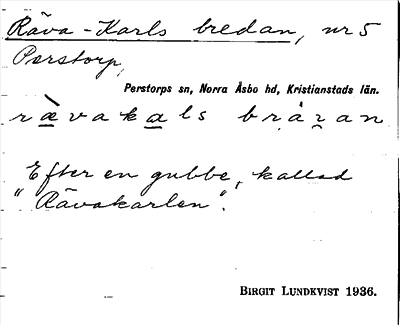 Räva-Karls bredan, nr 5
Perstorp,
Perstorps sn, Norra Åsbo hd, Kristianstads län.
rævakals brẹran
Efter en gubbe, kallad
"Rävakarlen".
BIRGIT LUNDKVIST 1936.